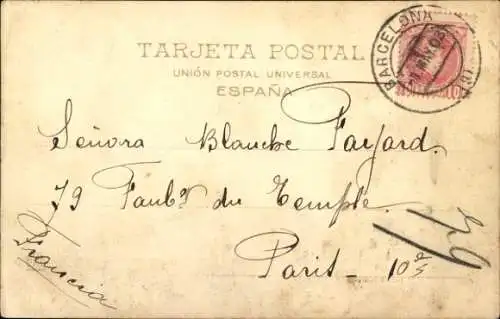 TARJETA POSTAL
UNIÓN POSTAL UNIVERSAL
ESPAÑA
BARCELONA
MAY 03
10
Señora Blanche Fayard.
79 Faubg du Temple.
Paris - 10e
Francia